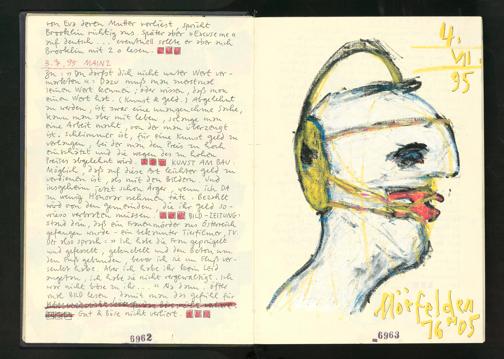 von Eva deren Mutter verliest, spricht
Brooklin richtig aus. Später aber »Excuse me«
auf deutsch... eventuell sollte er aber auch
Brooklin mit 2 o lesen.
3.7.95 MAINZ
Zu: »Du darfst dich nicht unter Wert ver-
markten«: Dazu muß man meistens
seinen Wert kennen; oder wissen, daß man
einen Wert hat. (Kunst & Geld.) Abgelehnt
zu werden, ist zwar eine unangenehme Sache,
kann man aber mit leben, solange man
eine Arbeit macht, von der man überzeugt
ist. Schlimmer ist, für eine Kunst Geld zu
verlangen bei der man den Preis zu hoch
einschätzt und die wegen des zu hohen
Preises abgelehnt wird. KUNST AM BAU:
Möglich, daß auf diese Art leichter Geld zu
verdienen ist, als mit den Bildern. Und
insgeheim jetzt schon Ärger, wenn ich DA
zu wenig Honorar nehmen täte. Bezahlt
wird von den Gemeinden, die ihr Geld so-
wieso verbraten müssen. BILD-ZEITUNG:
stand drin, daß ein Frauenmörder aus Österreich
gefangen wurde - ein bekannter Tierfilmer, TV.
Der also sprach: »Ich habe die Frau geprügelt
und gefesselt, geknebelt und den Beton, am
Fuß gebunden, bevor ich sie im Fluß ver-
senkt habe. Aber ich habe ihr kein Leid
angetan, ich habe sie nicht vergewaltigt. Ich
war nicht böse zu ihr...« Also dann, öfter
mal BILD lesen, damit man das Gefühl für
Gut & Böse nicht verliert.
6962
4.
VII.
95
Mörfelden
16 05
6963